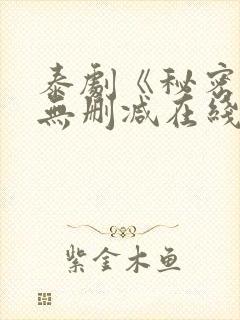 泰劇《秘密
無刪减在綫
紫金木鱼